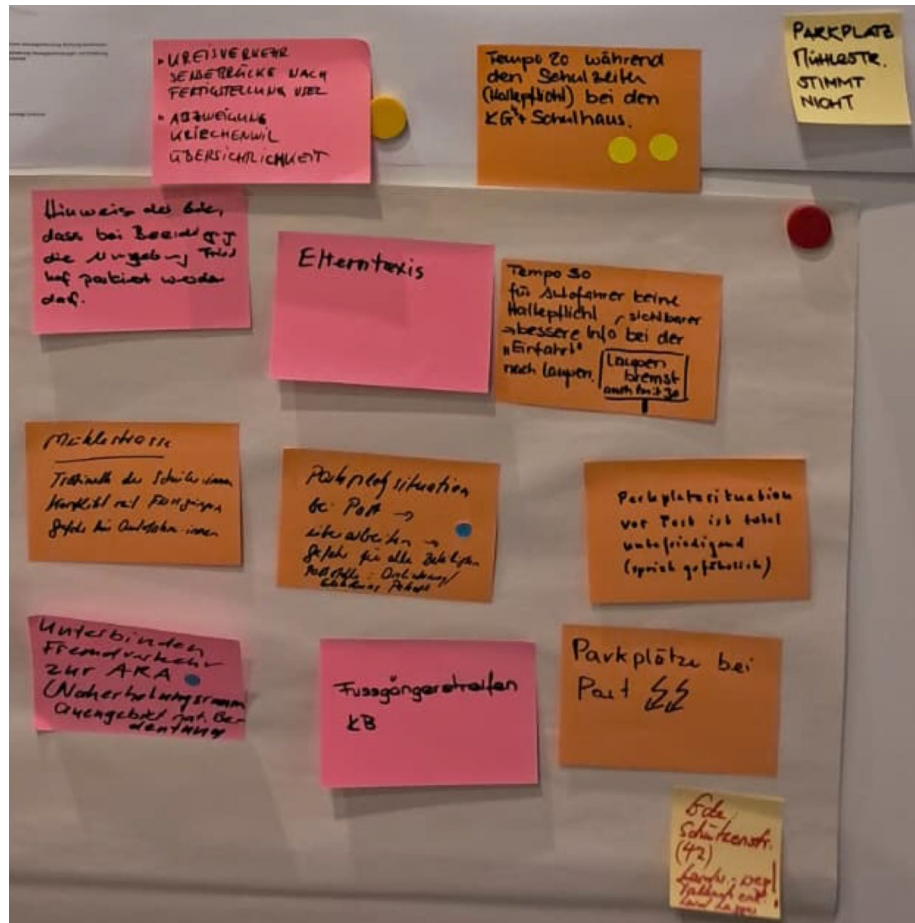 • KREISVERKEHR
SENSEBRÜCKE NACH
FERTIGSTELLUNG
• ABZWEIGUNG
KRIECHENWIL
ÜBERSICHTLICHKEIT
Tempo 20 während
den Schulzeiten
(Haltepflicht) bei den
KG + Schulhaus.
PARKPLATZ
MÜHLESTR.
STIMMT
NICHT
Hinweis
dass bei Beerdigung
die Umgebung Fried
hof parkiert werden
darf.
Elterntaxis
Tempo 30
für Autofahrer keine
Haltepflicht, sichtbarer
→ bessere Info bei der
"Einfahrt"
nach Laupen.
Laupen
bremst
auch für 30
Mühlestrasse
der Schüler:innen
mit Fussgängern
Parkplatzsituation
bei Post →
überarbeiten →
Gefahr für alle Beteiligten
Parkplatzsituation
vor Post ist total
unbefriedigend
(sprich gefährlich)
Unterbinden
Fremdverkehr
zur ARA
(Naherholungsraum
Auengebiet nat. Be-
deutung
Fussgängerstreifen
KB
Parkplätze bei
Post
Ecke
Schützenstr.
(42)